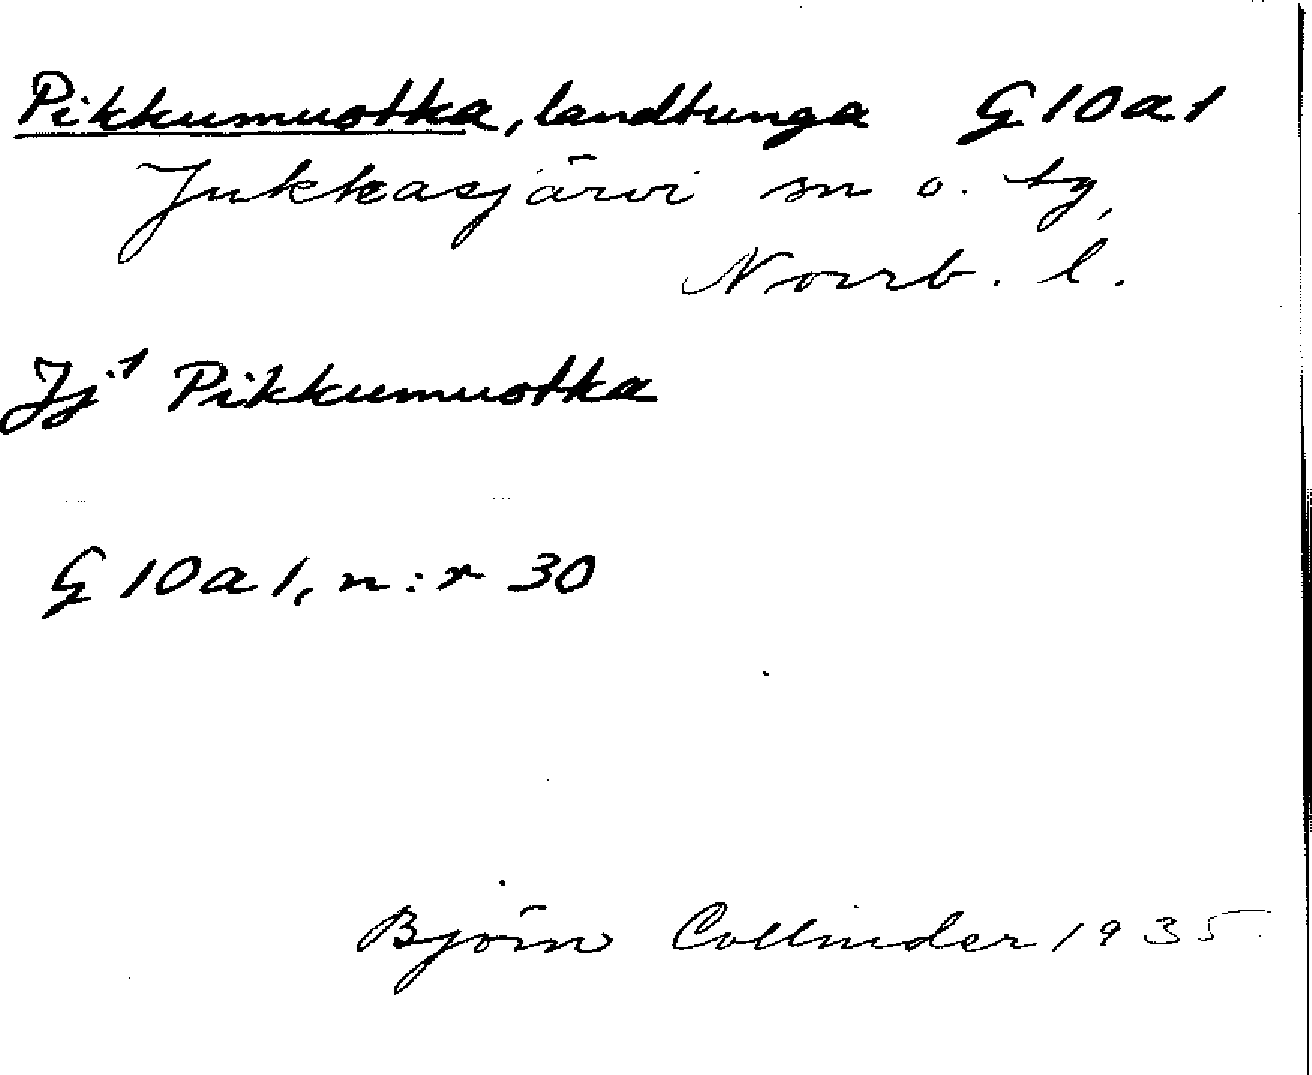 Pikkumuotka, landtunga G10a1
Jukkasjärvi sn o. tg,
Norrb. l.
Jj1 Pikkumuotka
G 10 a 1, n:r 30
Björn Collinder 1935